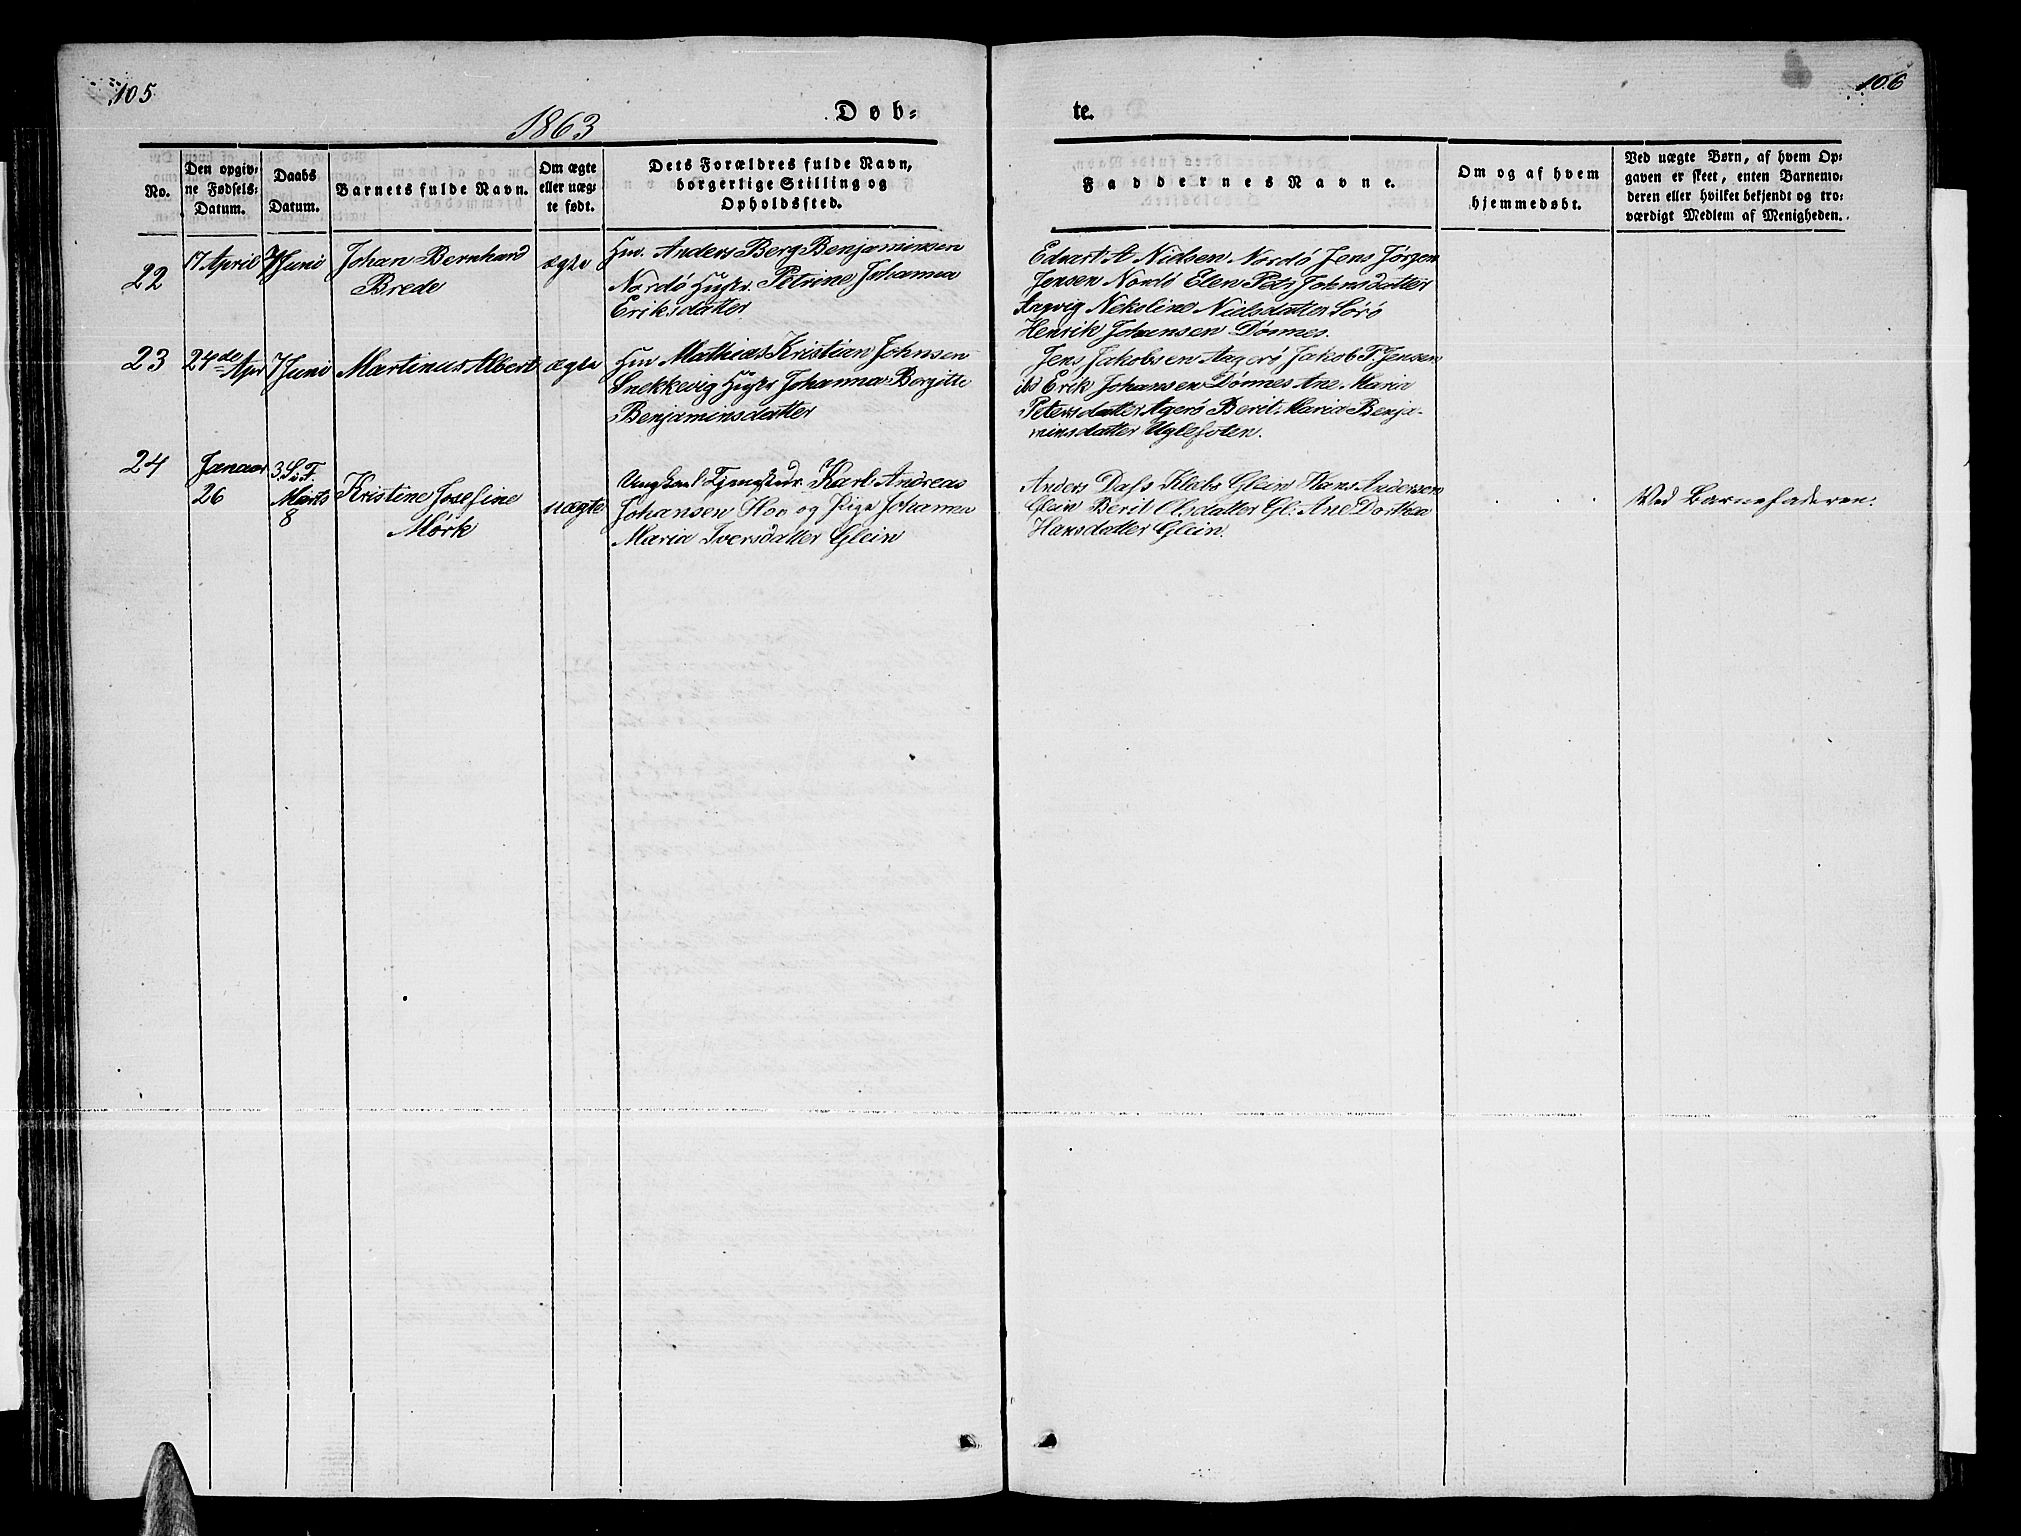 105
106
1863
Døb=
te.
No.
Den opgiv=
ne Fødsels=
Datum.
Daabs
Datum.
Barnets fulde Navn.
Om ægte
eller uæg=
te født.
Dets Forældres fulde Navn,
borgerlige Stilling og
Opholdssted.
Faddernes Navne.
Om og af hvem
hjemmedøbt.
Ved uægte Børn, af hvem Op=
gaven er skeet, enten Barnemo=
deren eller hvilket bekjendt og tro=
værdigt Medlem af Menigheden.
22
17 April
7 Juni
Johan Bernhard
Brede
ægte
Hm. Anders Berg Benjaminsen
Nordö Hustr. Petrine Johanna
Eriksdatter
Edvart A Nielsen Nordö Jens Jörgen
Jensen Nordö Elen Petr. Johnsdatter
Nekoline Nielsdatter Sörö
Henrik Johansen Dönnes.
23
24de Apr
7 Juni
Martinus Albert
ægte
Hm Mathias Kristian Johnsen
Snekkevig Hustr Johanna Bergitte
Benjaminsdatter
Jens Jakobsen Aagerö Jakob F. Jensen
ibd Erik Johansen Dönnes Ane Maria
Petersdatter Agerö Berit Maria Benja-
minsdatter Uglefoten.
24
Januar
26
3. S. i F.
Marts
8
Kristine Josefine
Mörk
uægte
Ungkarl Karl Andreas
Johansen Hov og Pige Johanna
Maria Iversdatter Glein
Anders Dass Klabo Glein Hans Andersen
Glein Berit Olsdatter Gl. Ane Dorthea
Hansdatter Glein.
Ved Barnefaderen.